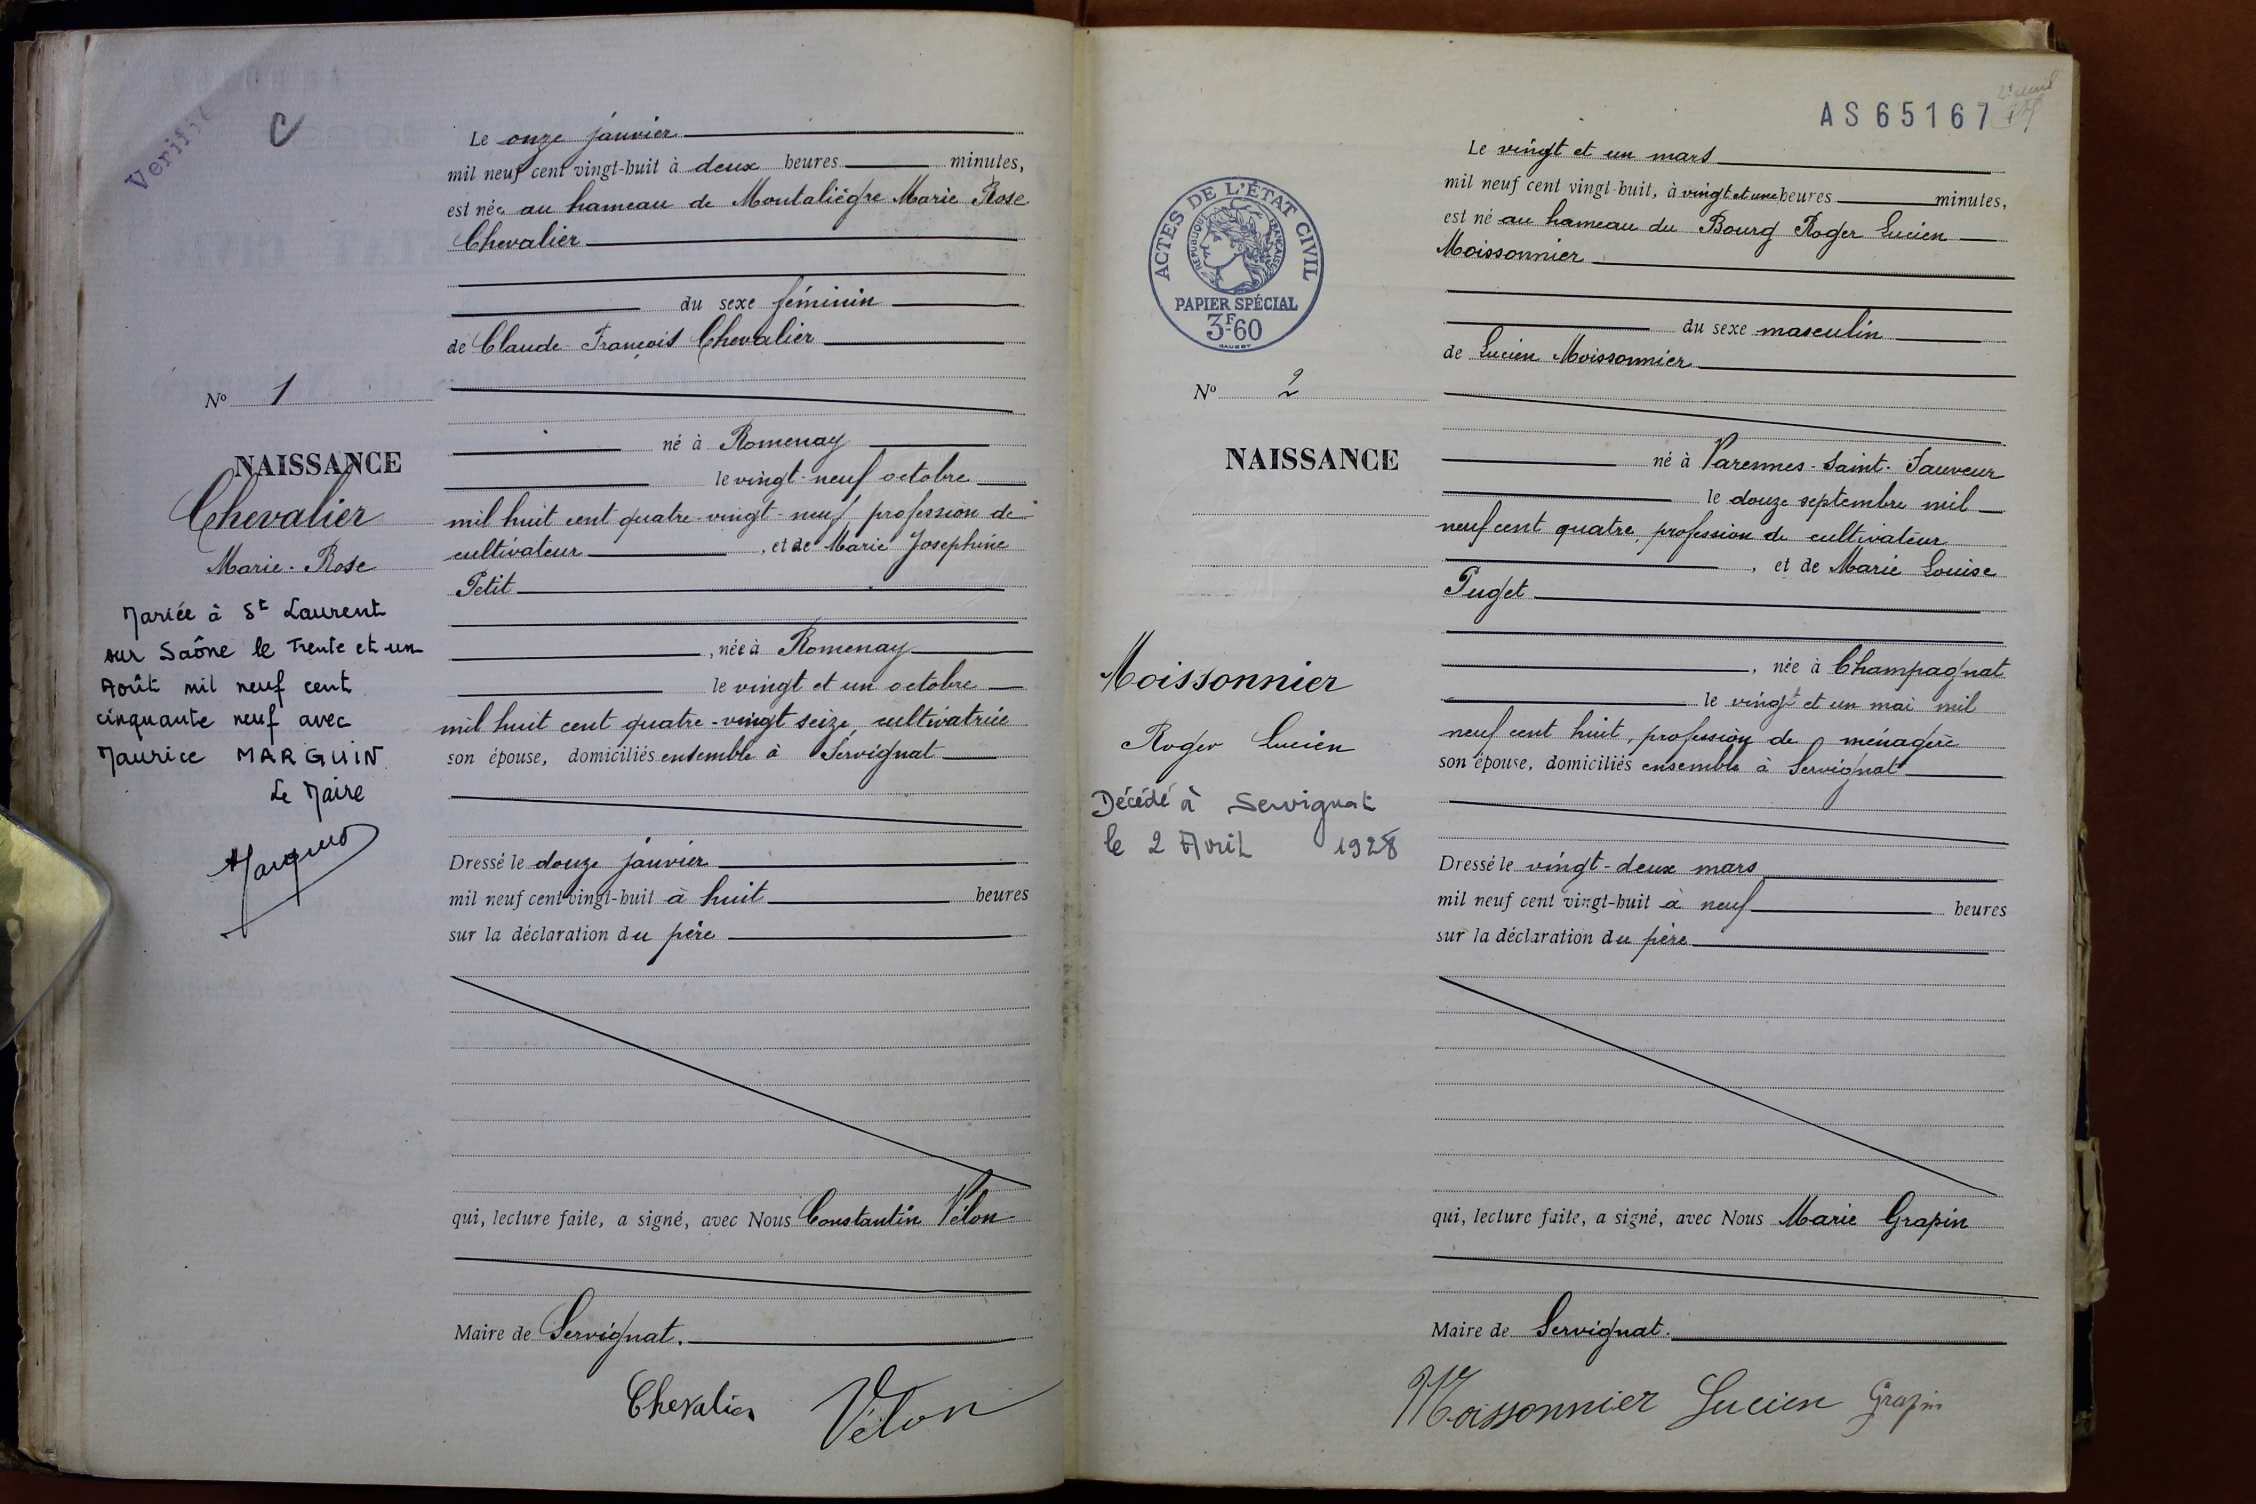 Verifié
C
Le onze janvier
mil neuf cent vingt-huit à deux heures minutes,
est née au hameau de Montaliègre Marie Rose
Chevalier
du sexe féminin
de Claude François Chevalier
né à Romenay
le vingt-neuf octobre
mil huit cent quatre-vingt-neuf, profession de
cultivateur, et de Marie Josephine
Petit
, née à Romenay
le vingt et un octobre
mil huit cent quatre-vingt seize, cultivatrice
son épouse, domiciliés ensemble à Servignat
Dressé le douze janvier
mil neuf cent vingt-huit à huit heures
sur la déclaration du père
qui, lecture faite, a signé, avec Nous Constantin Vélon
Maire de Servignat.
Chevalier Vélon
No 1
NAISSANCE
Chevalier
Marie-Rose
Mariée à St Laurent
sur Saône le Trente et un
Août mil neuf cent
cinquante neuf avec
Maurice MARGUIN
Le Maire
AS65167
ACTES DE L'ÉTAT CIVIL
RÉPUBLIQUE FRANÇAISE
PAPIER SPÉCIAL
3F60
No 2
NAISSANCE
Moissonnier
Roger Lucien
Décédé à Servignat
le 2 Avril 1928
Le vingt et un mars
mil neuf cent vingt-huit, à vingt et une heures minutes,
est né au hameau du Bourg Roger Lucien
Moissonnier
du sexe masculin
de Lucien Moissonnier
né à Varennes-Saint-Sauveur
le douze septembre mil
neuf cent quatre, profession de cultivateur
, et de Marie Louise
Puget
, née à Champagnat
le vingt et un mai mil
neuf cent huit, profession de ménagère
son épouse, domiciliés ensemble à Servignat
Dressé le vingt-deux mars
mil neuf cent vingt-huit à neuf heures
sur la déclaration du père
qui, lecture faite, a signé, avec Nous Marie Grapin
Maire de Servignat.
Moissonnier Lucien Grapin